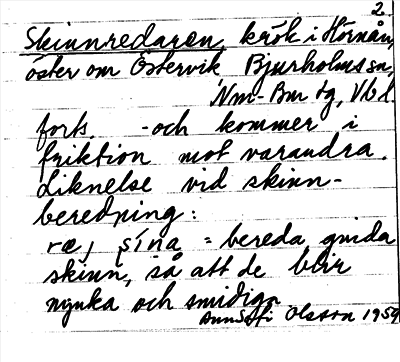 2.
Skinnredaren, krök i Hörnån,
öster om Östervik Bjurholms sn,
Nm-Bm tg, Vbl.
forts. - och kommer i
friktion mot varandra.
Liknelse vid skinn-
beredning:
ræ, sína = bereda, gnida
skinn, så att de blir
mjuka och smidiga.
Olsson 1959